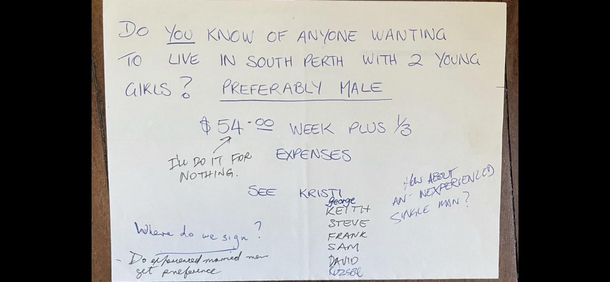 DO YOU KNOW OF ANYONE WANTING
TO LIVE IN SOUTH PERTH WITH 2 YOUNG
GIRLS? PREFERABLY MALE
$54.00 WEEK PLUS 1/3
EXPENSES
I'LL DO IT FOR
NOTHING.
SEE KRISTI
George
KEITH
STEVE
FRANK
SAM
DAVID
HOW ABOUT
AN INEXPERIENCED
SINGLE MAN?
Where do we sign?
- Do experienced married men
get preference